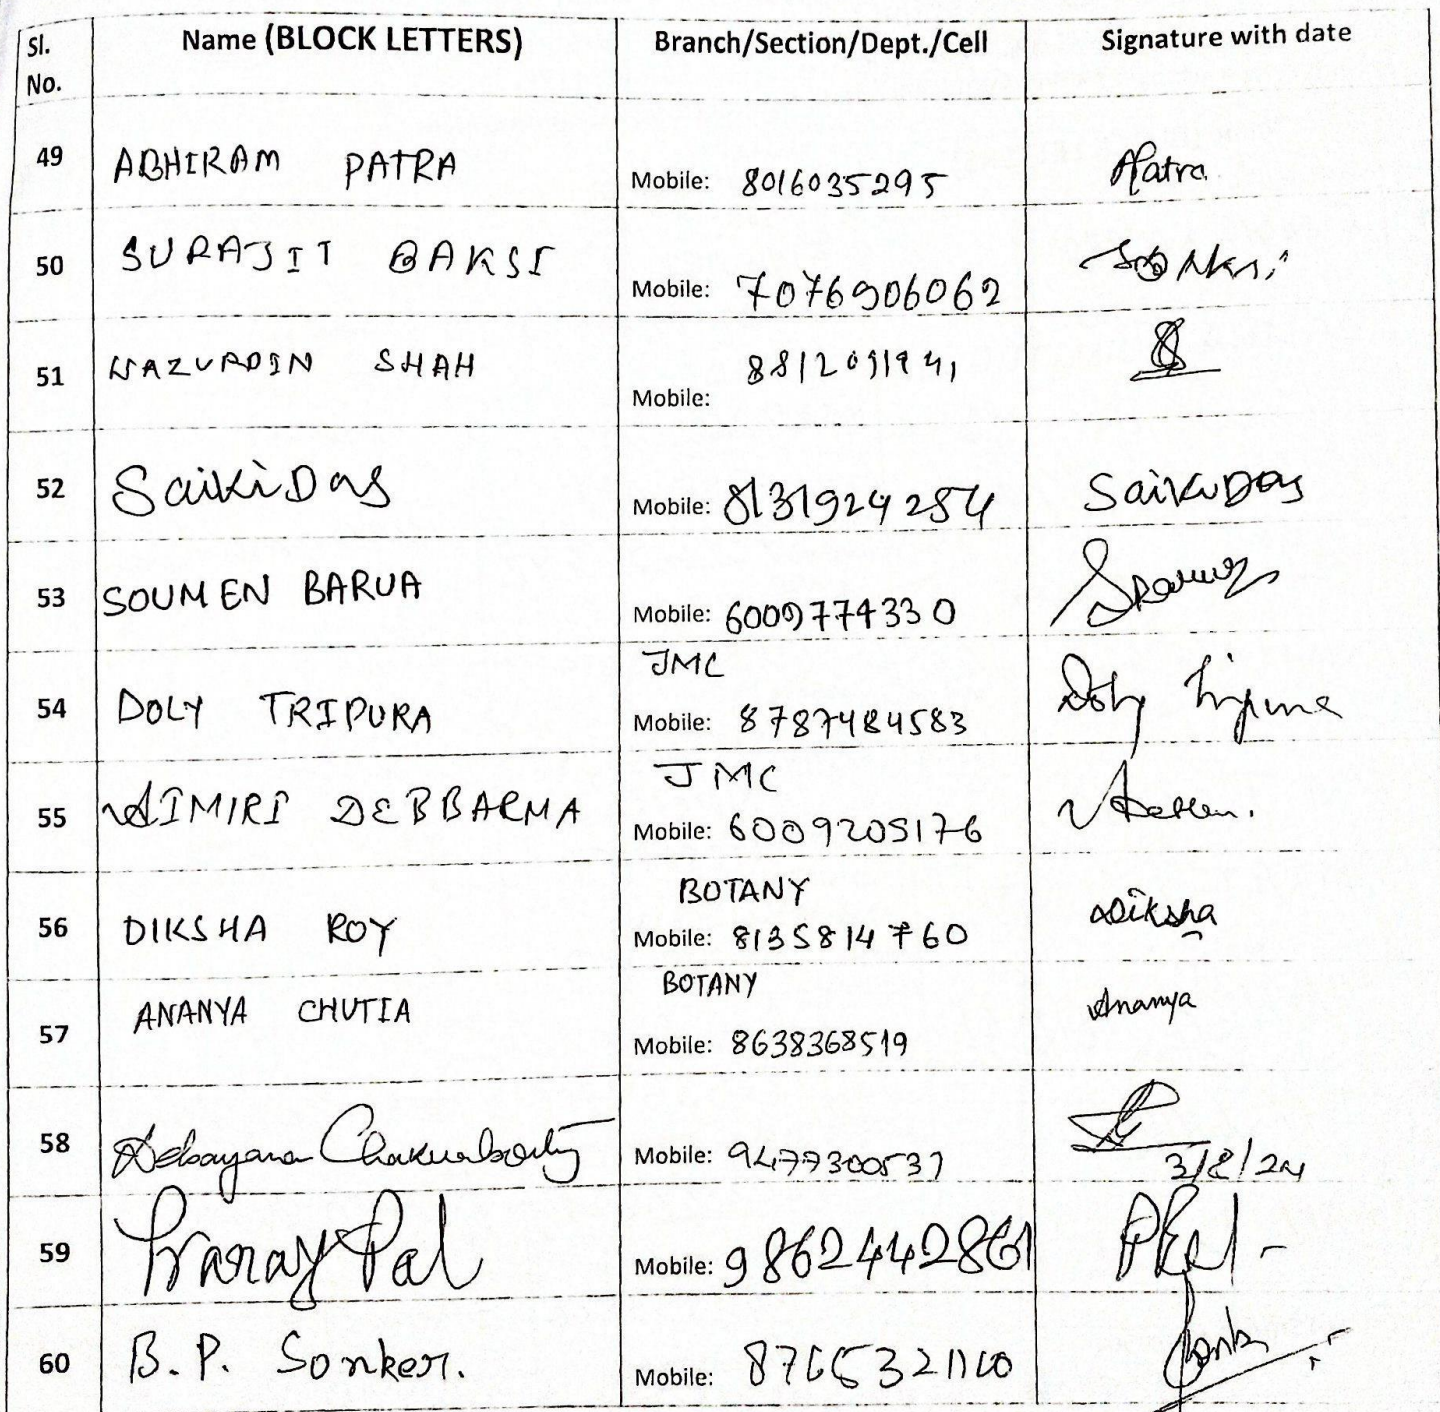 Sl. No. Name (BLOCK LETTERS) Branch/Section/Dept./Cell Signature with date
49 ABHIRAM PATRA Mobile: 8016035295 APatra
50 SURAJIT BAKSI Mobile: 7076906062
51 Mobile: SHAH
52 SaikiDas Mobile: 8131924254 SaikiDas
53 SOUMEN BARUA Mobile: 6009774330
JMC
54 DOLY TRIPURA Mobile: 8787484583 Doly Tripura
JMC
55 DEBBARMA Mobile: 6009205176
BOTANY
56 DIKSHA ROY Mobile: 8135814760 Diksha
BOTANY
57 ANANYA CHUTIA Mobile: 8638368519 Ananya
58 Debayana Chakraborty Mobile: 9477300537 3/8/24
59 Pranay Pal Mobile: 9862442861
60 B.P. Sonker. Mobile: